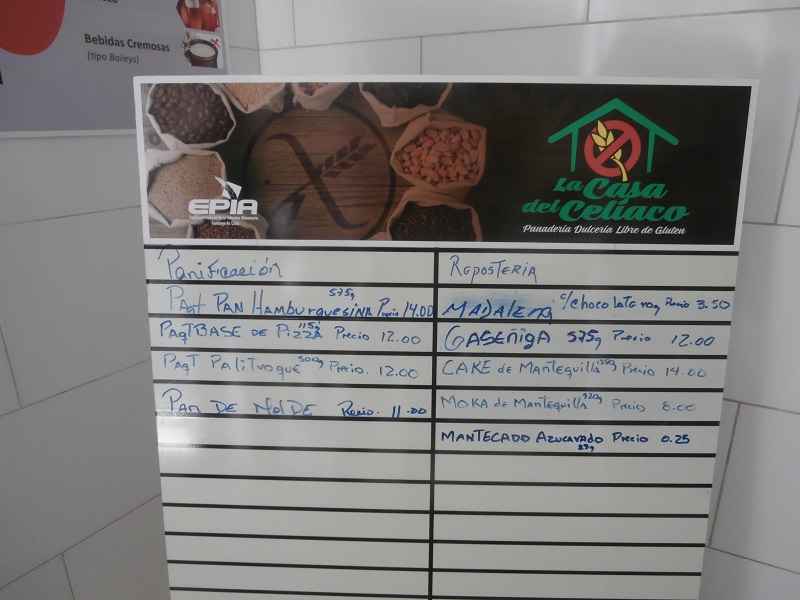 Bebidas Cremosas
(tipo Baileys)
EPIA
La Casa
del Celíaco
Panadería Dulcería Libre de Gluten
Panificación
Paqt Pan Hamburguesina 575g Precio 14.00
Paqt Base de Pizza 115g Precio 12.00
Paqt Palitroque 300g Precio. 12.00
Pan de Molde Precio. 11.00
Reposteria
Madalena c/chocolate Precio 3.50
Gaseñiga 575g Precio 12.00
Cake de Mantequilla Precio 14.00
Moka de Mantequilla 920g Precio 8.00
Mantecado Azucarado 25g Precio 0.25